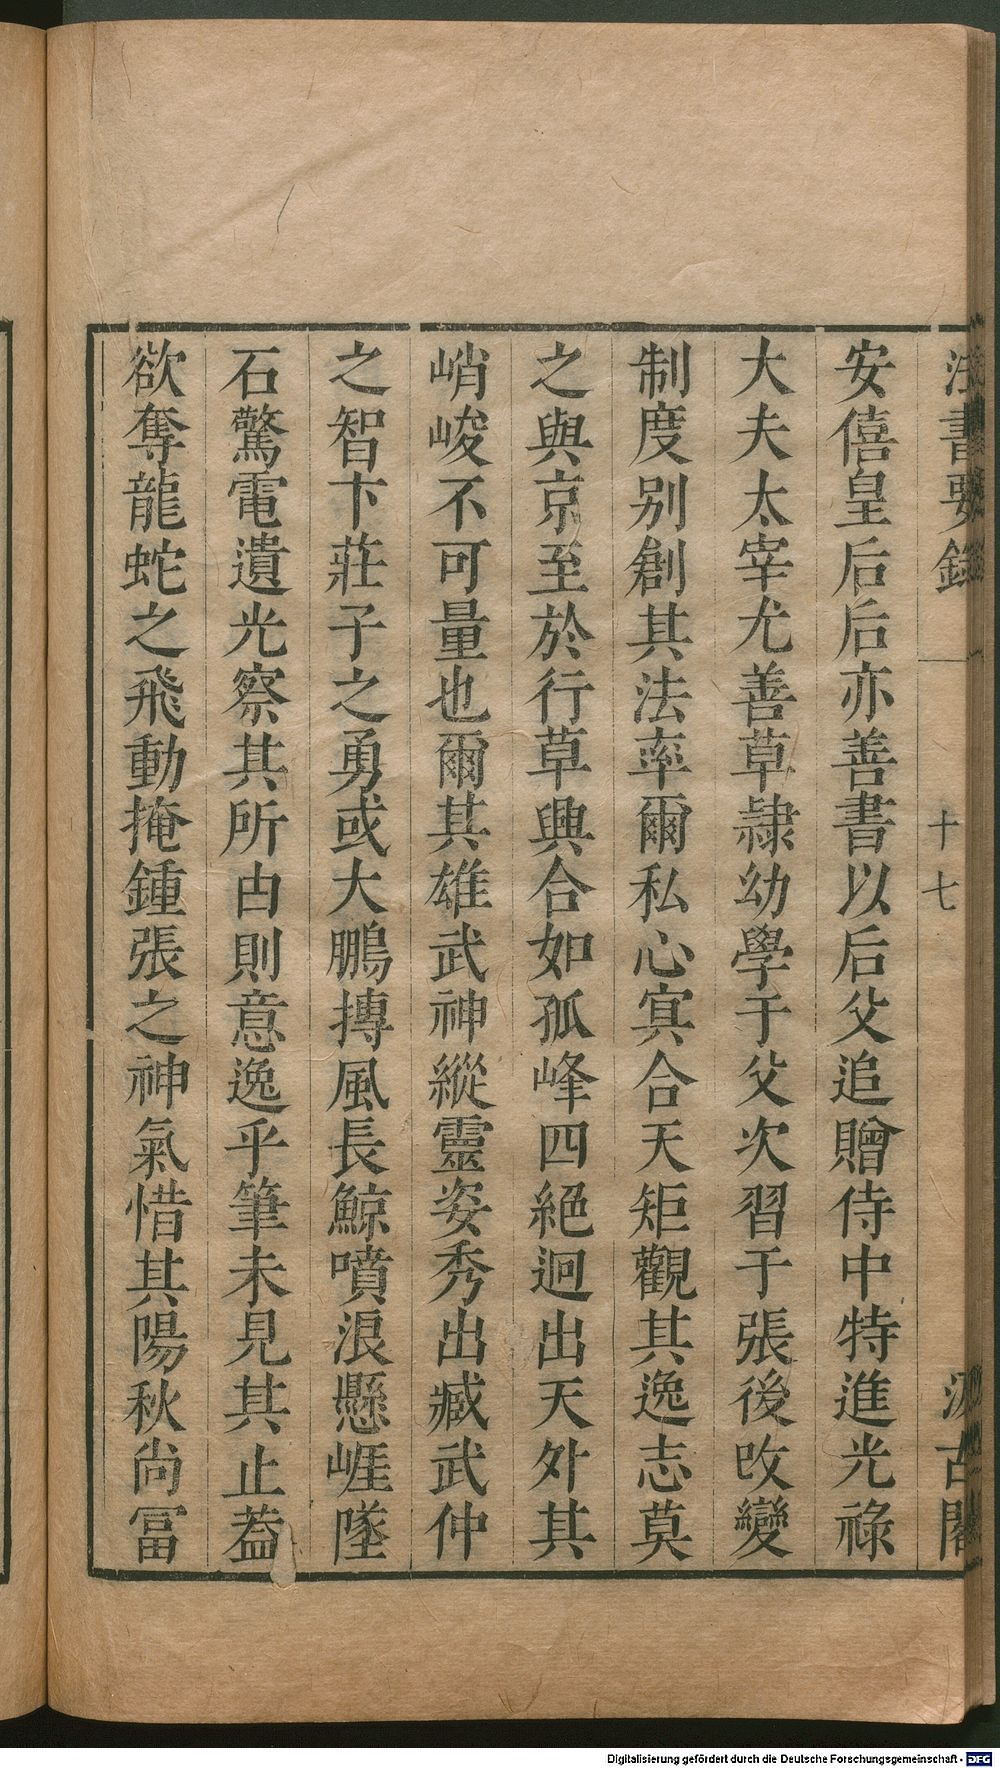 法書要錄
十七
汲古閣
安僖皇后后亦善書以后父追贈侍中特進光祿
大夫太宰尤善草隷幼學于父次習于張後攺變
制度别創其法率爾私心㝠合天矩觀其逸志莫
之與京至於行草興合如孤峰四絕迥出天外其
峭峻不可量也爾其雄武神縱靈姿秀出臧武仲
之智卞莊子之勇或大鵬摶風長鯨噴浪懸崖墜
石驚電遺光察其所由則意逸乎筆未見其止葢
欲奪龍蛇之飛動掩鍾張之神氣惜其陽秋尚冨
Digitalisierung gefördert durch die Deutsche Forschungsgemeinschaft - DFG